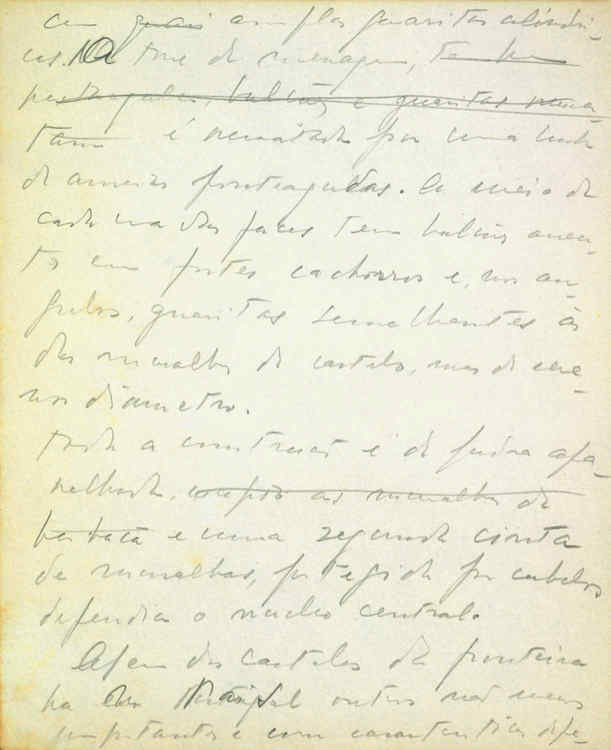 em quais amplas guaritas cilíndri-
cas. A torre de menagem, tem
rectangular, balcões e guaritas
é rematada por uma linha
de ameias ponteagudas. Ao meio de
cada uma das faces tem balcões assen-
tes em fortes cachorros e, nos an-
gulos, guaritas semelhantes ás
das muralhas do castelo, mas de me-
nor diametro.
toda a construcão é de pedra apa-
relhada, as muralhas da
barbacã e uma segunda cinta
de muralhas, protegida por cubelos
defendia o nucleo central.
Alem dos castelos da fronteira
ha em Portugal outros não menos
importantes e com caracteristicas